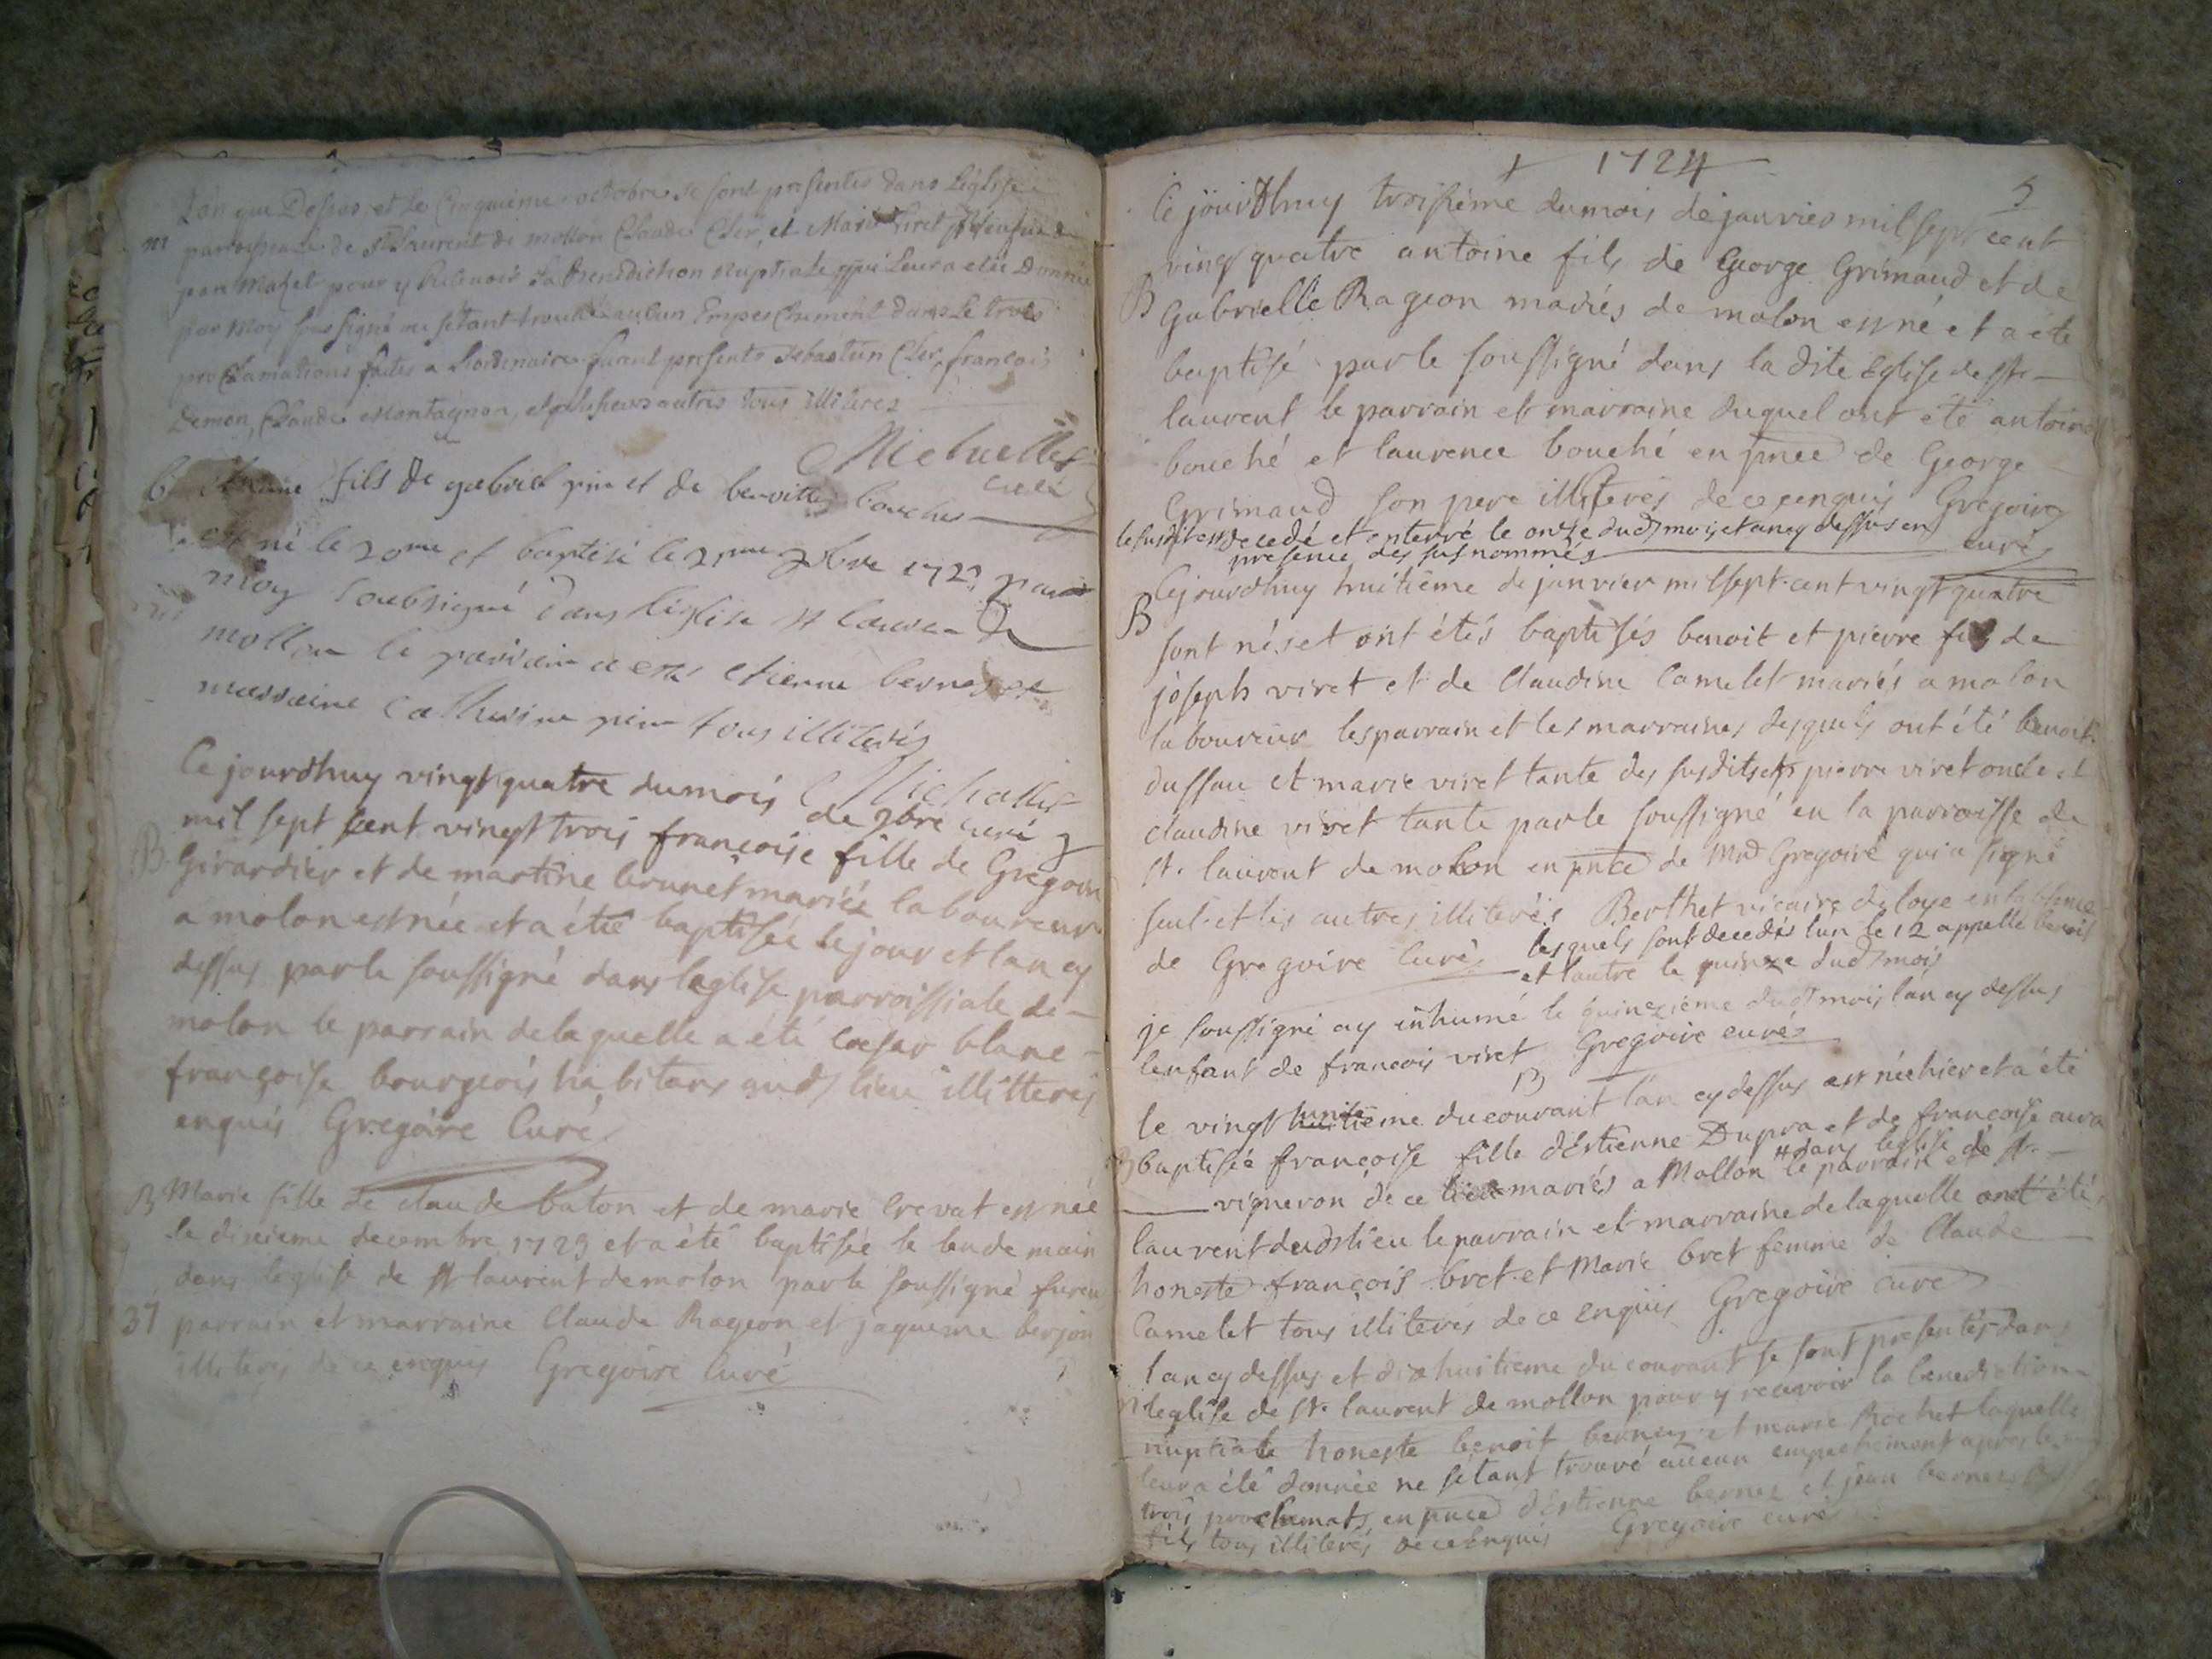 Lan que Dessus et Le Cinquieme octobre se sont presentés dans Léglise
m
parroissiale de St Laurent de mollon Claude Cler, et Marie Viret
par Mazel pour y Recevoir La Benediction Nuptiale qui Leur a etée Donnée
par Moy soussigné ne sétant trouvé aucun Empeschement dans Le trois
proclamations faites a Lordinaire furent presents Sebastien Cler, francois
Demon, Claude Montagnon, et plusieurs autres tous illiterez
curé
b
fils de gabriel pin et de benoitte bouché
est né le 20me et baptisé le 21me 1723 par
moy soubsigné dans léglise st laurent
mollon le parrain a esté etienne bernez et
marraine Catherine pin tous illiterés
Ce jourdhuy vingt quatre du mois de 9bre
curé
mil sept cent vingt trois françoise fille de Gregoire
B
Girardier et de martine brunet mariés laboureur
a molon est née et a été baptisée le jour et lan cy
dessus par le soussigné dans leglise parroissiale de
molon le parrain de laquelle a été Cæsar blanc
françoise bourgeois habitans aud lieu illitterés
enquis Gregoire Curé
B Marie fille de claude baton et de marie crevat est née
le dixieme decembre 1723 et a été baptisée le lendemain
dans leglise de st laurent de molon par le soussigné furent
37 parrain et marraine Claude Rageon et jaqueme berjon
illiterés de ce enquis Gregoire Curé
+ 1724
5
Ce jourdhuy troisiéme du mois de janvier mil sept cent
vingt quatre antoine fils de George Grimaud et de
B
Gabrielle Rageon mariés de molon est né et a été
baptisé par le soussigné dans la dite Eglise de st
laurent le parrain et marraine duquel ont été antoine
bouché et laurence bouché en pnce de George
Grimaud son pere illiterés de ce enquis Gregoire
curé
le susdit est decedé et enterré le onze dud mois et an cy dessus en
presence des susnommés
Cejourdhuy huitième de janvier mil sept cent vingt quatre
B
sont nés et ont étés baptisés benoit et pierre fils de
joseph viret et de Claudine Camelet mariés a molon
laboureur les parrain et les marraines desquels ont été benoit
dussau et marie viret tante des susdits et pierre viret oncle et
claudine viret tante par le soussigné en la parroisse de
st. laurent de molon en pnce de Mrd Gregoire qui a signé
seul et les autres illiterés Berthet vicaire de loye en labsence
de Gregoire Curé lesquels sont decedés lun le 12 appellé benoit
et lautre le quinze dud mois
je soussigné ay inhumé le quinzieme dud mois lan cy dessus
lenfant de francois viret Gregoire curé
B
le vingt huitieme du courant lan cy dessus est née hier et a été
B baptisée françoise fille dEstienne Dupra et de françoise
vigneron de ce lieu mariés a Mollon # dans leglise de st.
le parrain et
laurent dudt lieu le parrain et marraine de laquelle ont été
honeste françois bret et Marie bret femme de Claude
Camelet tous illiterés de ce enquis Gregoire curé
lan cy dessus et dix huitieme du courant se sont presentés dans
m leglise de st. laurent de mollon pour y recevoir la benediction
nuptiale honeste benoit bernez et marie Rochet laquelle
leur a été donnée ne sétant trouvé aucun empechement apres les
trois proclamats en pnce dEstienne bernez et jean bernez
fils tous illiterés de ce Enquis Gregoire curé